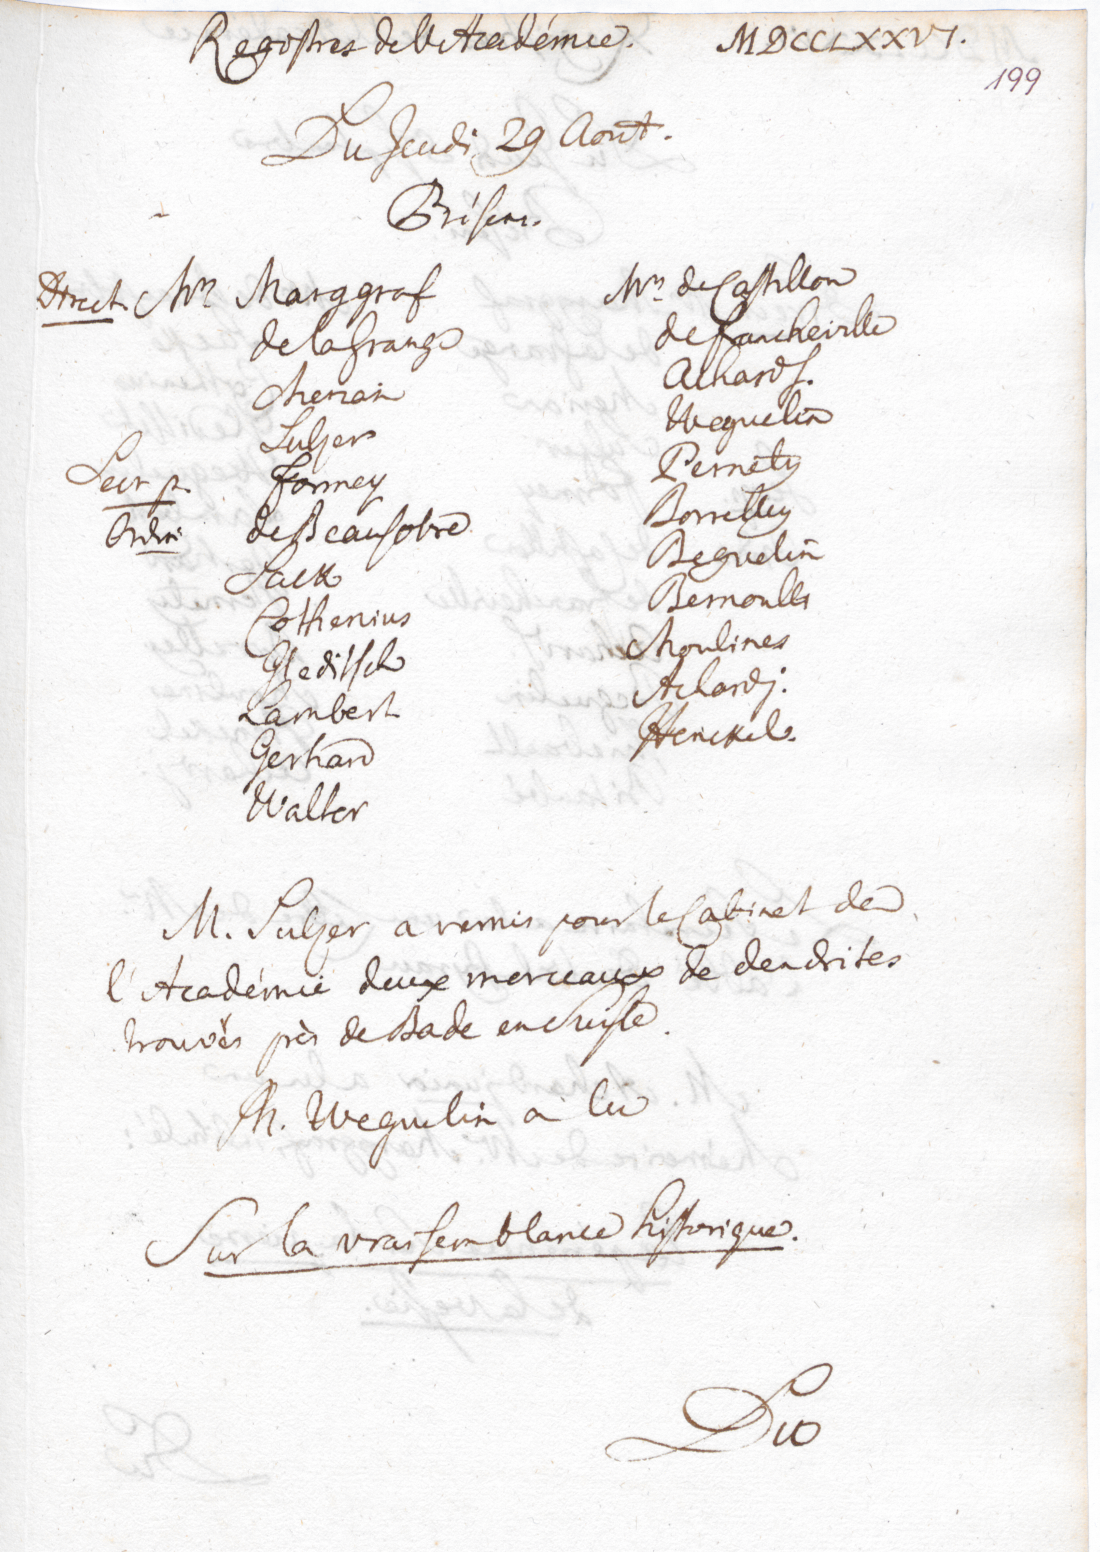 Registres de l'Académie. MDCCLXXVI.
199
Du Jeudi 29 Aout.
Présens.
Direct. Mrs Marggraf
de la Grange
Merian
Sulzer
Secr. p. Formey
Ordin: de Beausobre
Pott
Cothenius
Gleditsch
Lambert
Gerhard
Walter
Mrs de Castillon
de Francheville
Achard f.
Weguelin
Pernety
Borrelly
Beguelin
Bernoulli
Moulines
Achard j.
Henckel.
M. Sulzer a remis pour le Cabinet de
l'Académie deux morceaux de dendrites
trouvés près de Bade en Suisse.
M. Weguelin a lu
Sur la vraisemblance historique.
Du